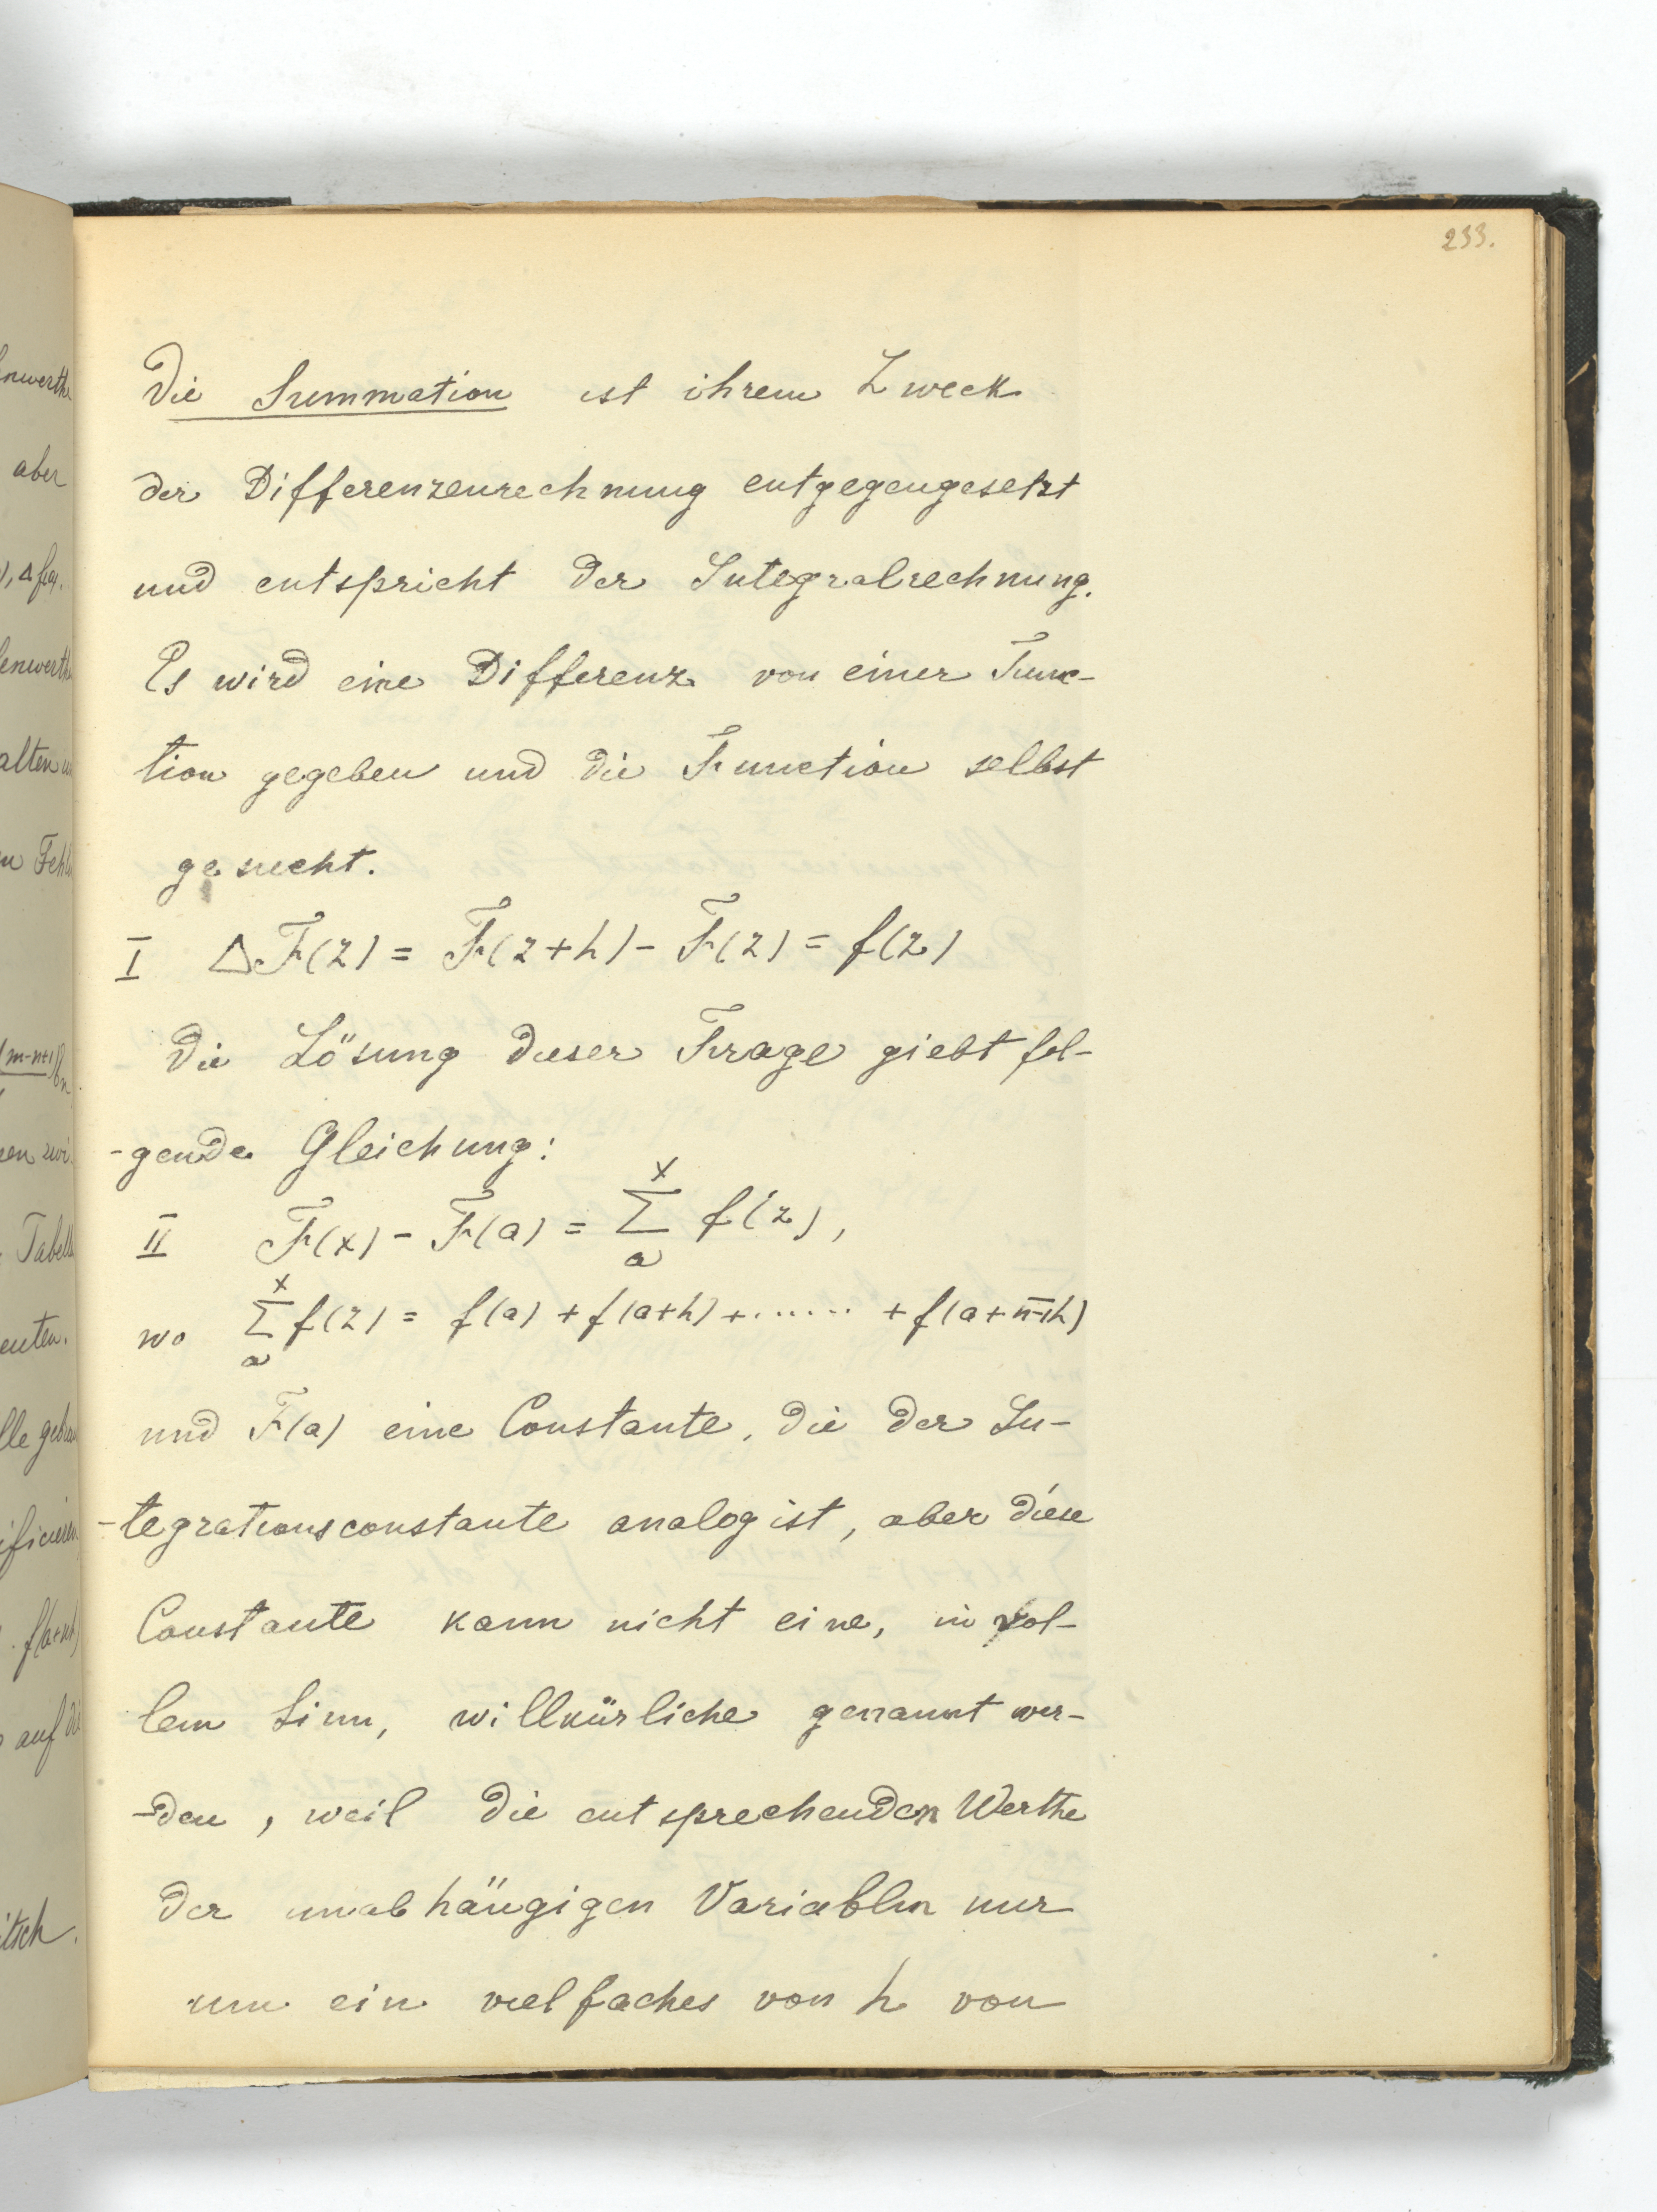 233.
Die Summation ist ihrem Zweck
der Differenzenrechnung entgegengesetzt
und entspricht der Integralrechnung.
Es wird eine Differenz von einer Func-
tion gegeben und die Function selbst
gesucht.
I ΔF(z) = F(z+h) - F(z) = f(z)
Die Lösung dieser Frage giebt fol-
-gende Gleichung:
II F(x) - F(a) = \sum_{a}^{x} f(z),
wo \sum_{a}^{x} f(z) = f(a) + f(a+h) + ...... + f(a+\overline{n-1}h)
und F(a) eine Constante, die der In-
-tegrationsconstante analog ist, aber diese
Constante kann nicht eine, in vol-
lem Sinn, willkürliche genannt wer-
-den, weil die entsprechenden Werthe
der unabhängigen Variablen nur
um ein vielfaches von h von
nwerthe
aber
), Δf(a).
enwerthe
alten
n Fehl
(m-n+1)
Tabell
enten.
lle gebrau
ificieren
f(a+nh)
auf
itsch.